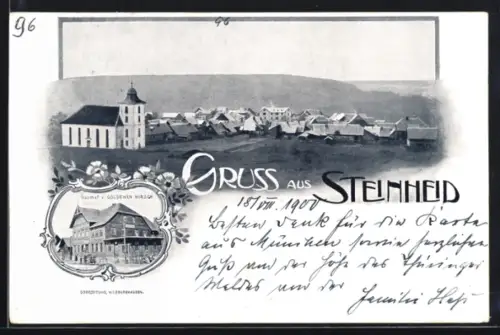 96
96
GRUSS AUS STEINHEID
18/VIII 1900
GASTHOF Z. GOLDENEN HIRSCH
Besten Dank für die Karte
aus München sowie herzlichen
Gruß von der Höhe des Thüringer
Waldes von der
Familie Heß